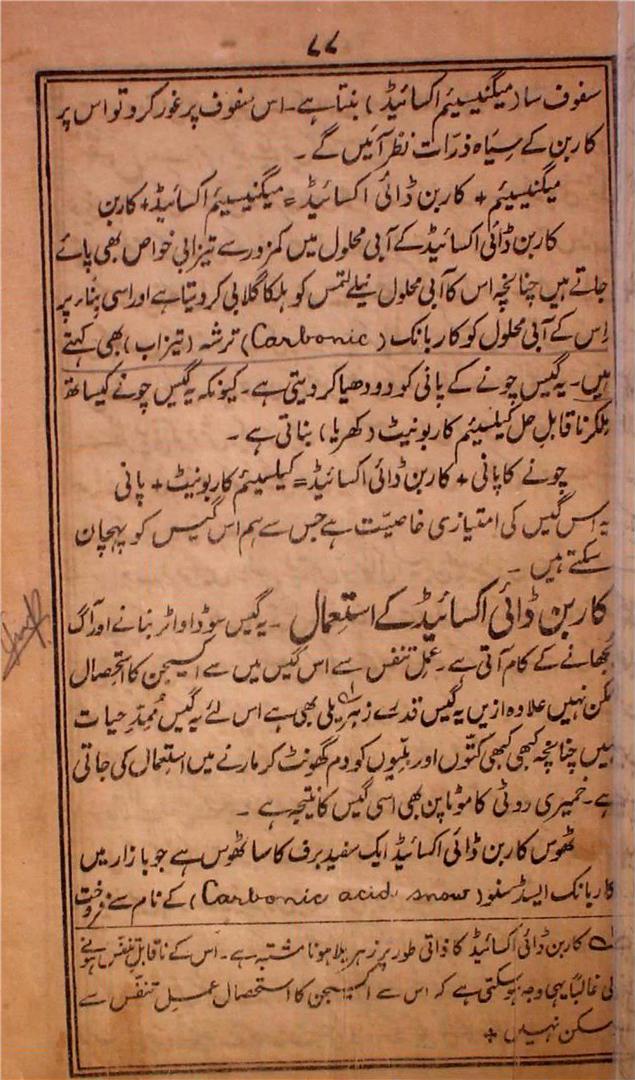 ۷۷
سفوف سا (میگنیسیئم اکسائیڈ) بنتا ہے۔ اس سفوف پر غور کرو تو اس پر
کاربن کے سیاہ ذرّات نظر آئیں گے۔
میگنیسیئم + کاربن ڈائی اکسائیڈ = میگنیسیئم اکسائیڈ + کاربن
کاربن ڈائی اکسائیڈ کے آبی محلول میں کمزور سے تیزابی خواص بھی پائے
جاتے ہیں چنانچہ اس کا آبی محلول نیلے لٹمس کو ہلکا گلابی کر دیتا ہے اور اسی بناء پر
اس کے آبی محلول کو کاربانک (Carbonic) ترشہ (تیزاب) بھی کہتے
ہیں۔ یہ گیس چونے کے پانی کو دودھیا کر دیتی ہے۔ کیونکہ یہ گیس چونے کیساتھ
ملکر ناقابلِ حل کیلسیئم کاربونیٹ (کھریا) بناتی ہے۔
چونے کا پانی + کاربن ڈائی اکسائیڈ = کیلسیئم کاربونیٹ + پانی
یہ اس گیس کی امتیازی خاصیّت ہے جس سے ہم اس گیس کو پہچان
سکتے ہیں۔
کاربن ڈائی اکسائیڈ کے استعمال ۔ یہ گیس سوڈا واٹر بنانے اور آگ
بجھانے کے کام آتی ہے۔ عملِ تنفس سے اس گیس میں سے اکسیجن کا استحصال
ممکن نہیں علاوہ ازیں یہ گیس قدرے زہریلی بھی ہے اس لئے یہ گیس مُمِدِّ حیات
نہیں چنانچہ کبھی کبھی کتّوں اور بلّیوں کو دم گھونٹ کر مارنے میں استعمال کی جاتی
ہے۔ خمیری روٹی کا موٹا پن بھی اسی گیس کا نتیجہ ہے۔
ٹھوس کاربن ڈائی اکسائیڈ ایک سفید برف کا سا ٹھوس ہے جو بازار میں
کاربانک ایسڈ سنو (Carbonic acid snow) کے نام سے فروخت
کاربن ڈائی اکسائیڈ کا ذاتی طور پر زہریلا ہونا مشتبہ ہے۔ اس کے ناقابلِ تنفس ہونے
کی غالباً یہی وجہ ہو سکتی ہے کہ اس سے اکسیجن کا استحصال عملِ تنفّس سے
ممکن نہیں +